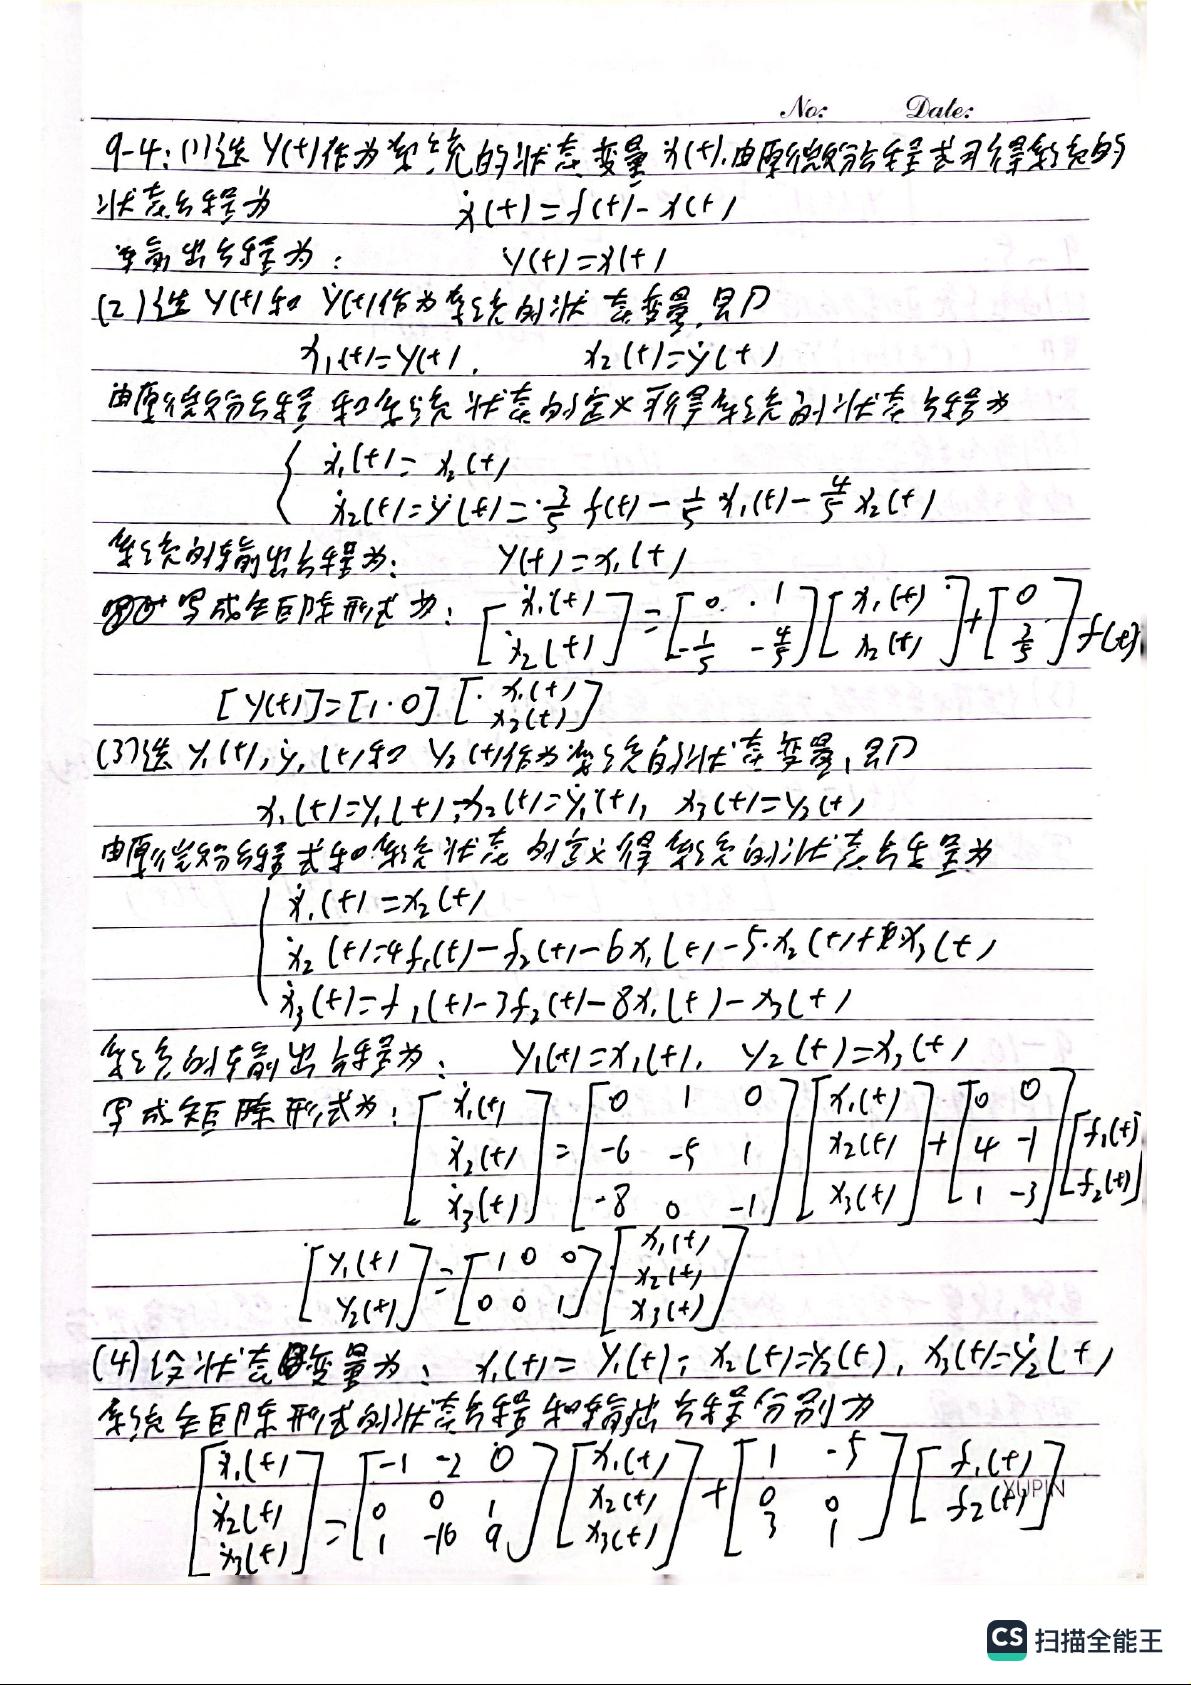 No: Date:
9-4: (1)选 y(t)作为系统的状态变量 x(t).由原微分方程式可得系统的
状态方程为 ẋ(t)=f(t)-x(t)
输出方程为: y(t)=x(t)
(2)选 y(t)和 ẏ(t)作为系统的状态变量,即
x₁(t)=y(t), x₂(t)=ẏ(t)
由原微分方程和系统状态的定义可得系统的状态方程为
{ ẋ₁(t)= x₂(t)
ẋ₂(t)=ÿ(t)=3/5 f(t)-1/5 x₁(t)-4/5 x₂(t)
系统的输出方程为: y(t)=x₁(t)
写成矩阵形式为: [ẋ₁(t) ẋ₂(t)]=[0 1 -1/5 -4/5][x₁(t) x₂(t)]+[0 3/5]f(t)
[y(t)]=[1 0][x₁(t) x₂(t)]
(3)选 y₁(t), ẏ₁(t)和 y₂(t)作为系统的状态变量,即
x₁(t)=y₁(t), x₂(t)=ẏ₁(t), x₃(t)=y₂(t)
由原微分方程式和系统状态的定义得系统的状态方程为
ẋ₁(t)=x₂(t)
ẋ₂(t)=4f₁(t)-f₂(t)-6x₁(t)-5x₂(t)+x₃(t)
ẋ₃(t)=f₁(t)-3f₂(t)-8x₁(t)-x₃(t)
系统的输出方程为: y₁(t)=x₁(t), y₂(t)=x₃(t)
写成矩阵形式为: [ẋ₁(t) ẋ₂(t) ẋ₃(t)]=[0 1 0 -6 -5 1 -8 0 -1][x₁(t) x₂(t) x₃(t)]+[0 0 4 -1 1 -3][f₁(t) f₂(t)]
[y₁(t) y₂(t)]=[1 0 0 0 0 1][x₁(t) x₂(t) x₃(t)]
(4)设状态变量为: x₁(t)= y₁(t), x₂(t)=y₂(t), x₃(t)=ẏ₂(t)
系统矩阵形式的状态方程和输出方程分别为
[ẋ₁(t) ẋ₂(t) ẋ₃(t)]=[-1 -2 0 0 0 1 1 -16 9][x₁(t) x₂(t) x₃(t)]+[1 -5 0 0 3 1][f₁(t) f₂(t)]
XUPIN
CS 扫描全能王